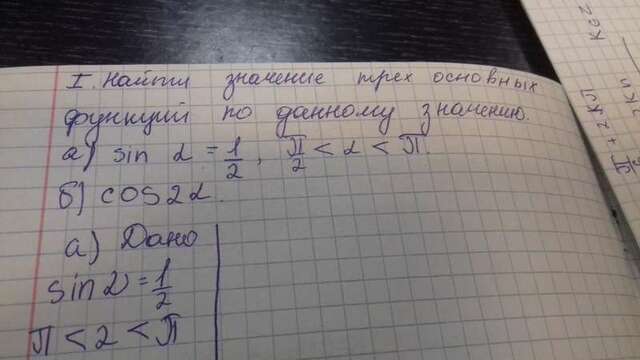 I. Найти значение трех основных
функций по данному значению.
а) sin α = 1/2, П/2 < α < П.
б) cos2α.
а) Дано
sin α = 1/2
П < α < П
П/2 + 2КП